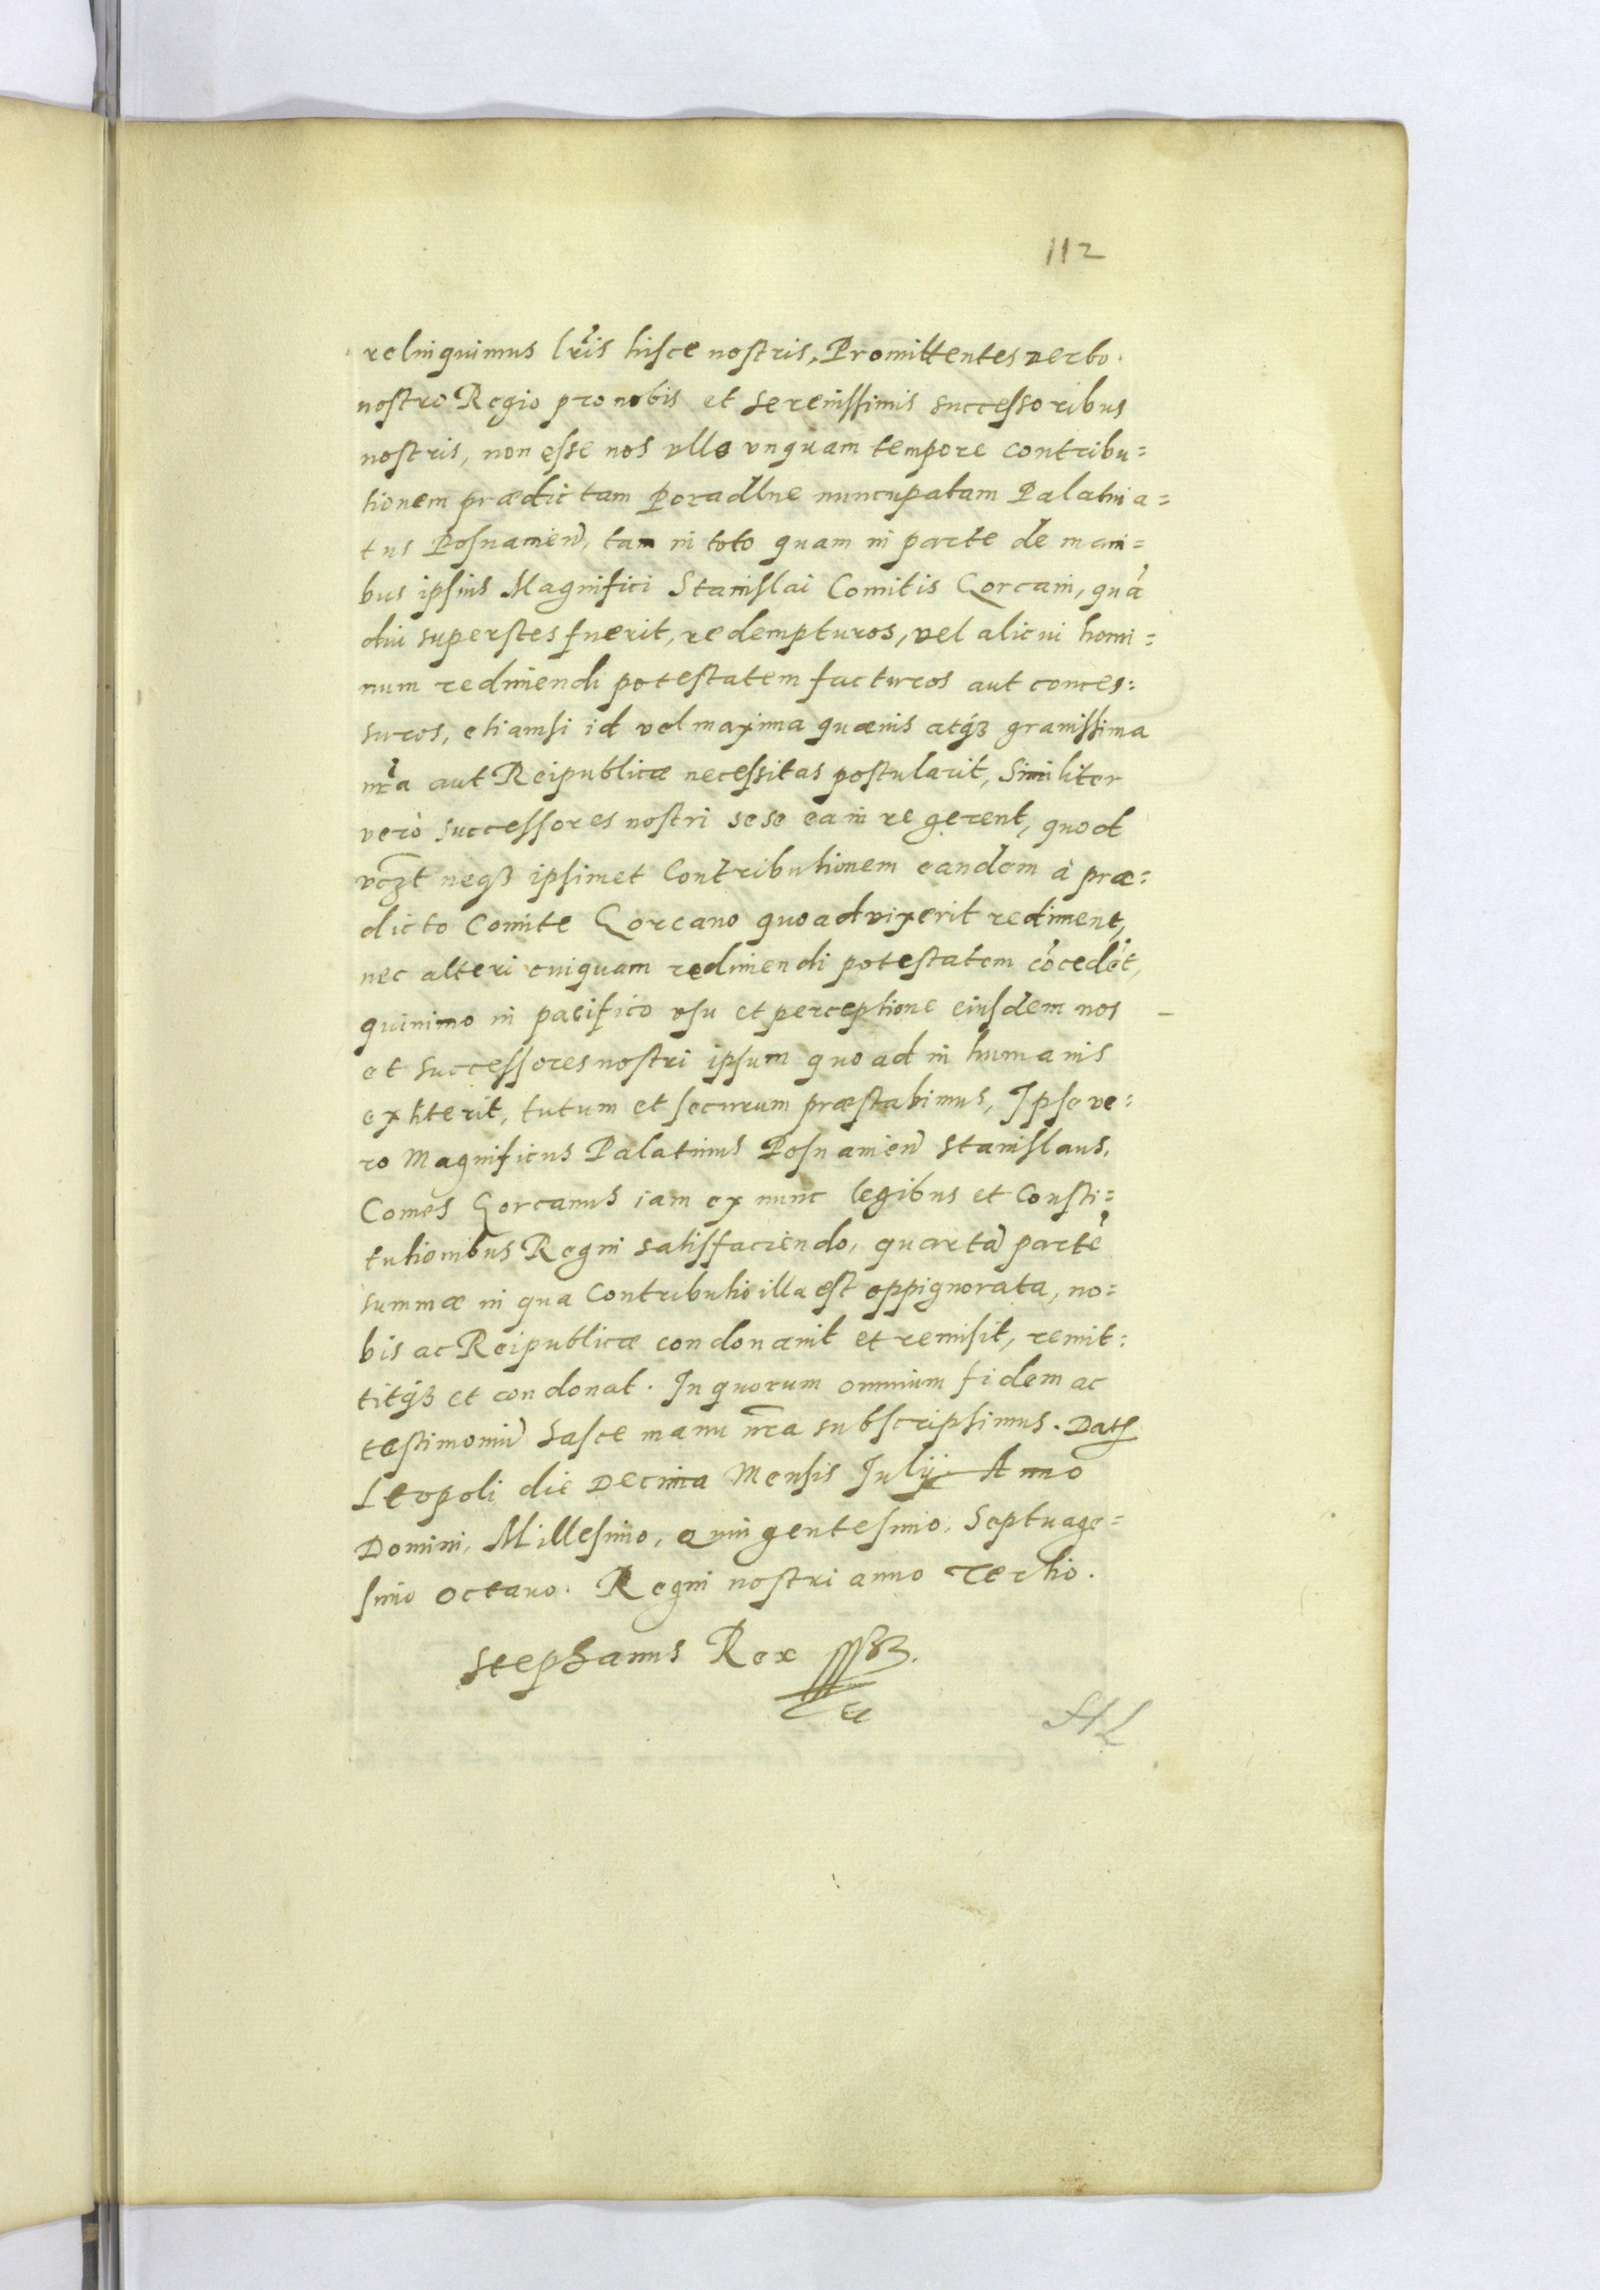 112
relinquimus lr̃is hisce nostris, Promittentes verbo
nostro Regio pro nobis et serenissimis successoribus
nostris, non esse nos vllo vnquam tempore contribu=
tionem prædictam Poradlne nuncupatam Palatina=
tus Posnamien̄, tam in toto quam in parte de mani=
bus ipsius Magnifici Stanislai Comitis Gorcani, quā
diu superstes fuerit, redempturos, vel alicui homi=
num redimendi potestatem facturos aut conces=
suros, etiamsi id vel maxima quævis atq₃ grauissima
nr̃a aut Reipublicæ necessitas postularit, Similiter
verò successores nostri sese ea in re gerent, quod
vcz̃t neq₃ ipsimet Contributionem eandem à præ=
dicto Comite Gorcano quoad vixerit rediment,
nec alteri cuiquam redimendi potestatem cōcedēt,
quinimo in pacifico vsu et perceptione eiusdem nos
et successores nostri ipsum quoad in humanis
extiterit, tutum et securum præstabimus, Ipse ve=
ro Magnificus Palatinus Posnamien̄ Stanislaus,
Comes Gorcanus iam ex nunc legibus et Consti=
tutionibus Regni satisfaciendo, quartā partē
summæ in qua Contributio illa est oppignorata, no=
bis ac Reipublicæ condonauit et remisit, remit=
titq₃ et condonat. In quorum omnium fidem ac
testimoniū hasce manu nr̃a subscripsimus. Dat̃
Leopoli die Decima Mensis Iulij Anno
Domini, Millesimo, Quingentesimo, Septuage=
simo Octauo. Regni nostri anno Tertio.
Stephanus Rex